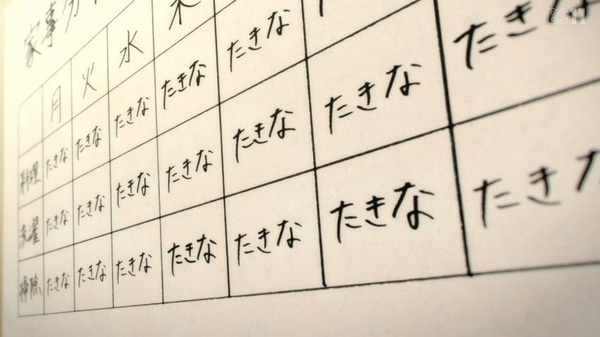 家事分
月 火 水 木
料理 たきな たきな たきな たきな たきな
洗濯 たきな たきな たきな たきな たきな たきな たきな
掃除 たきな たきな たきな たきな たきな たきな たき